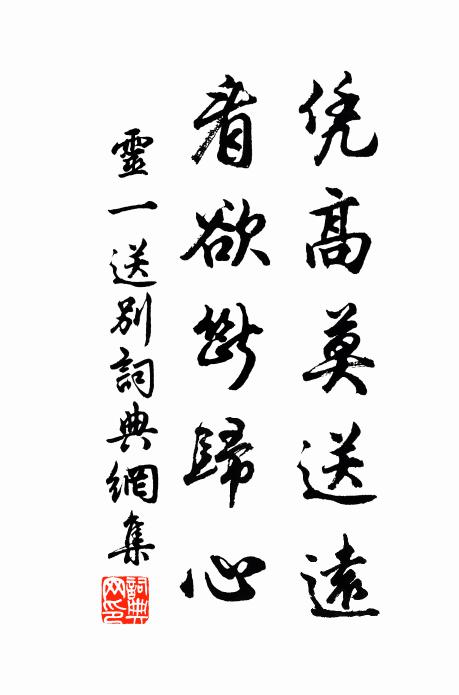 凭高莫送遠
看欲斷歸心
靈一送別詞典網集
詞典网印